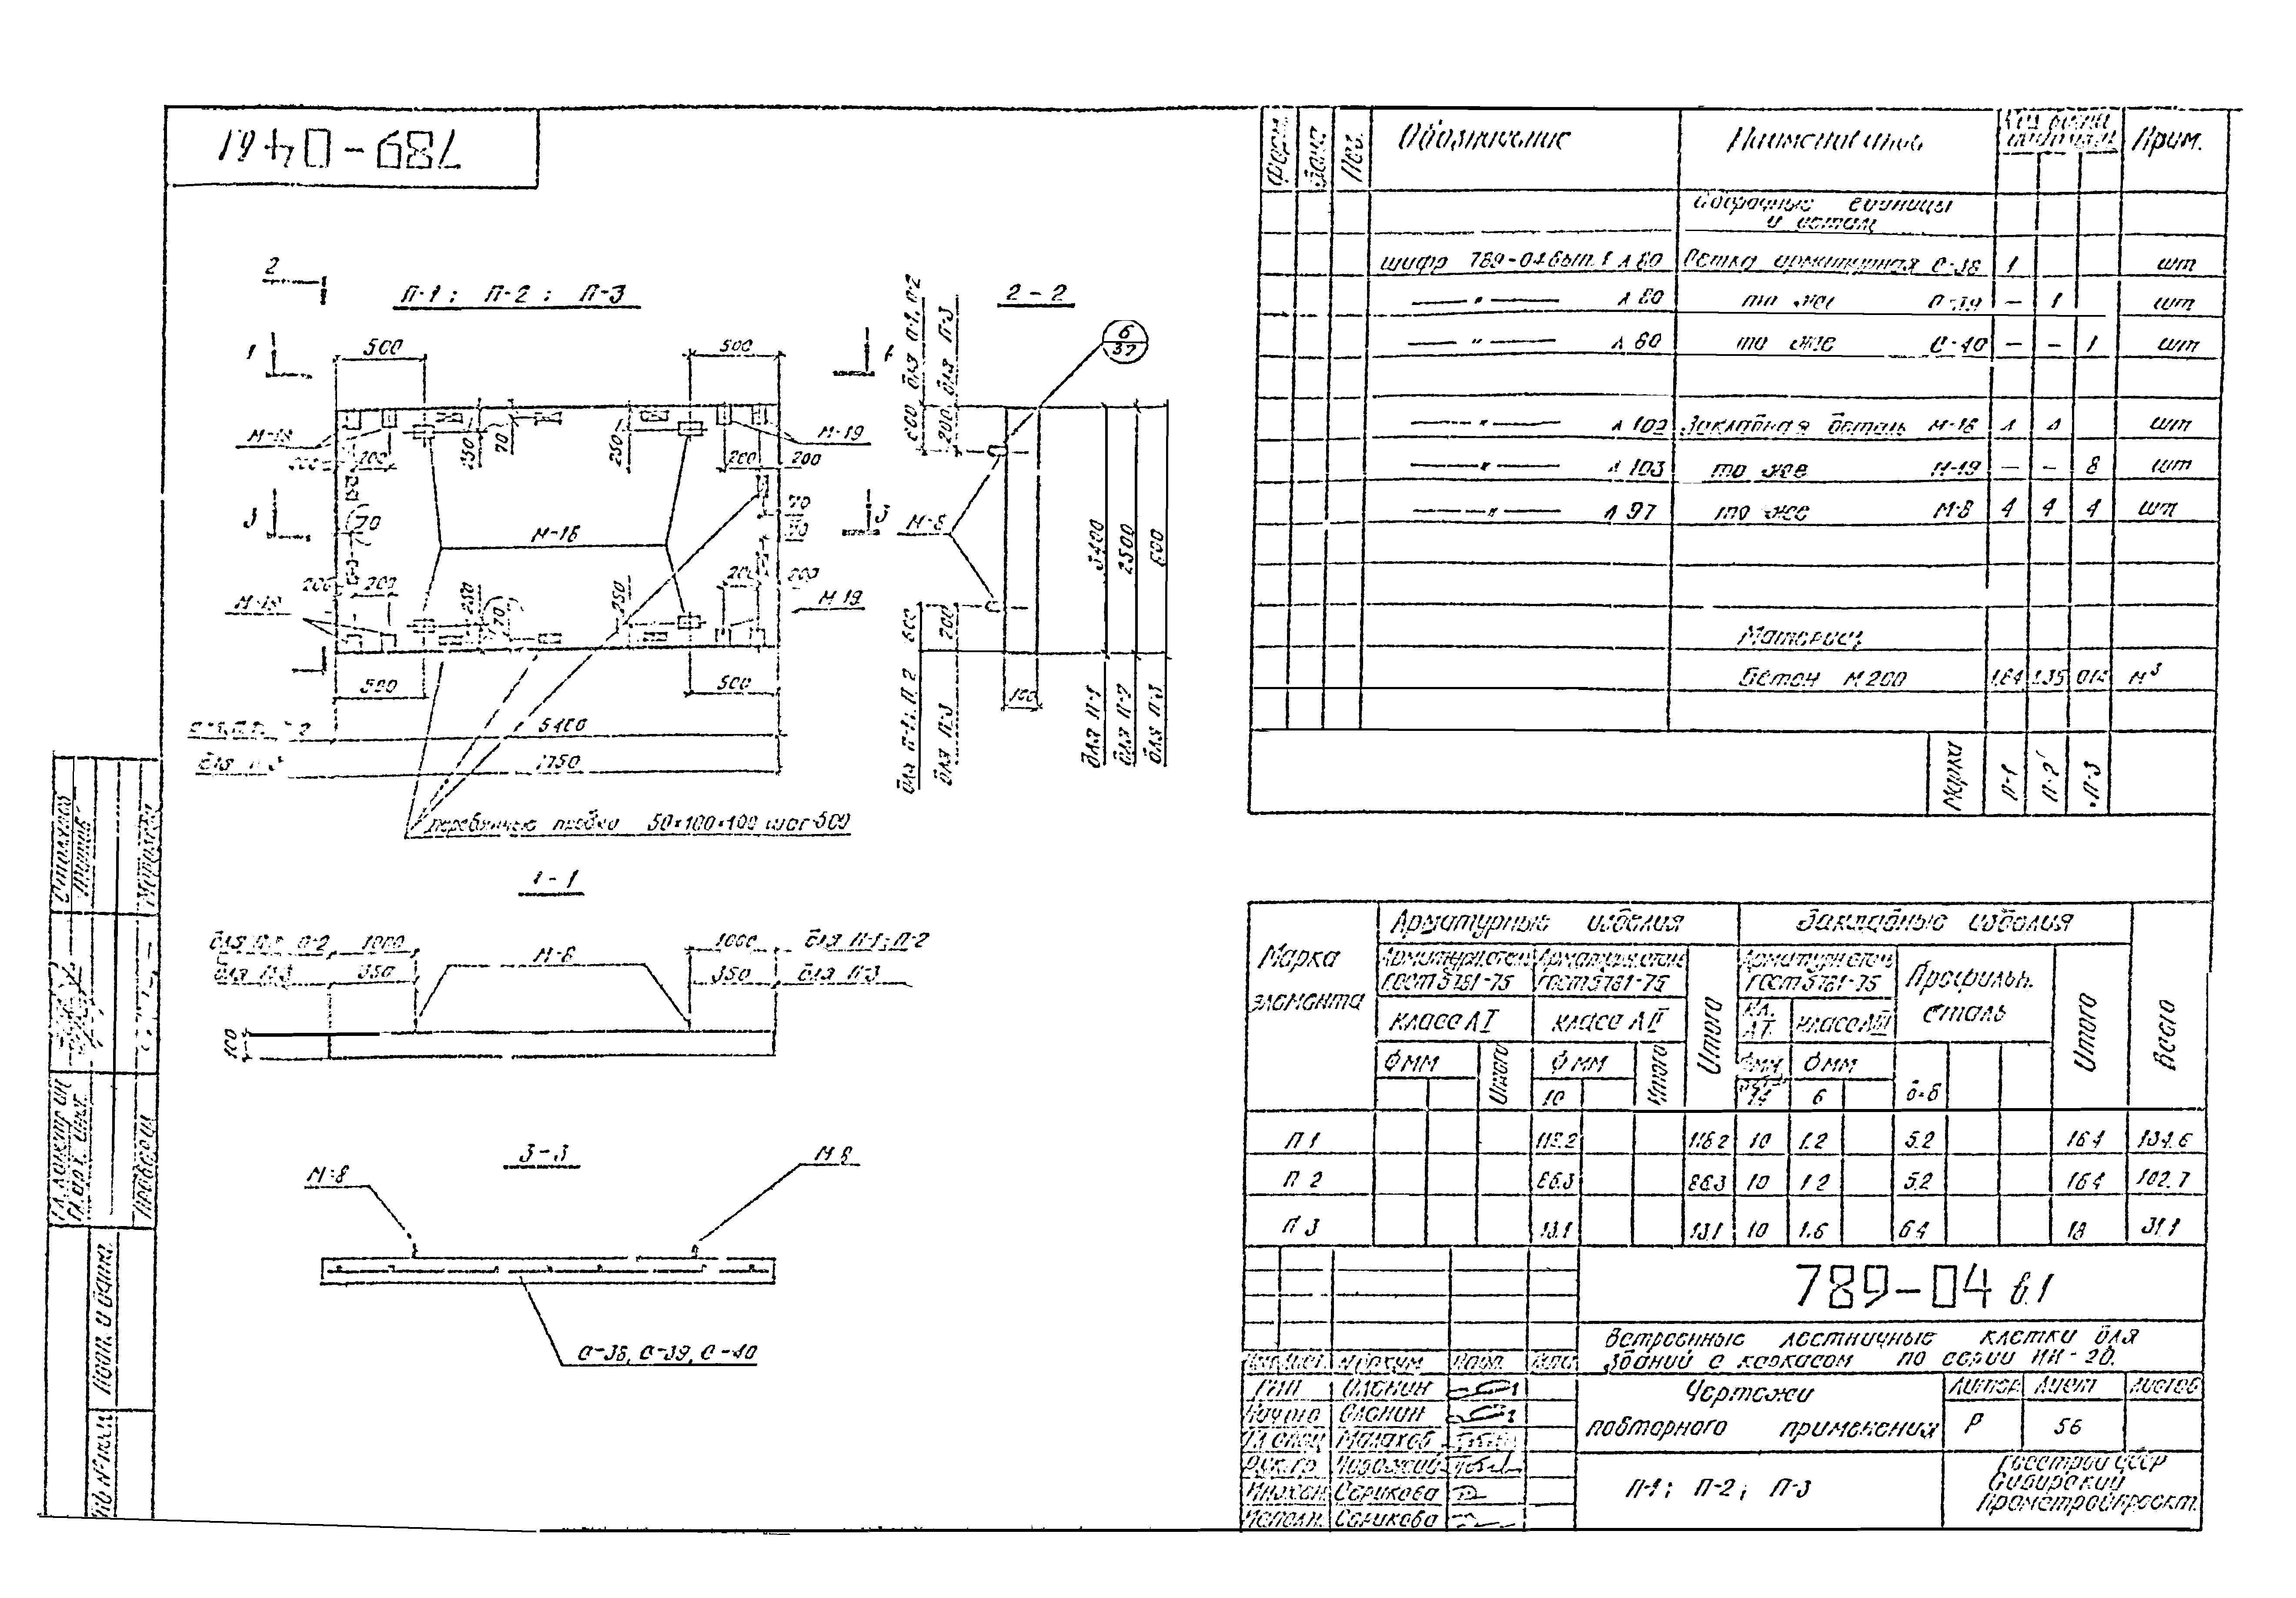 789-04 в.1
П-1; П-2; П-3
2
1
500
500
М-18
М-19
200
200
200
250
70
250
3
70
М-16
70
200
200
200
250
70
250
М-19
500
500
5400
1750
деревянные пробки 50×100×100 шаг 500
2-2
600 для П-1, П-2
200 для П-3
6
37
М-8
3400
2500
600
600
200
100
для П-1; П-2
для П-3
для П-1
для П-2
для П-3
1-1
для П-1 П-2 1000
1000 для П-1; П-2
для П-3 350
350 для П-3
М-8
100
3-3
М-8
М-8
С-38, С-39, С-40
Форм.
Зона
Поз.
Обозначение
Наименование
Прим.
Сборочные единицы
и детали
шифр 789-04 вып.1 л 80 Сетка арматурная С-38 1 шт
—"— л 80 то же С-39 — 1 шт
—"— л 80 то же С-40 — — 1 шт
—"— л 102 Закладная деталь М-16 4 4 шт
—"— л 103 то же М-19 — — 8 шт
—"— л 97 то же М-8 4 4 4 шт
Материал
Бетон М 200 1.84 1.35 0.14 м³
Марка П-1 П-2 П-3
Марка элемента
Арматурные изделия
Закладные изделия
Всего
Арматурн. стал ГОСТ 5781-75
Арматурн. стал ГОСТ 5781-75
Итого
Арматурн. стал ГОСТ 5781-75
Профильн. сталь
Итого
класс А I
класс А II
кл. А I
класс А III
Ф мм
Итого
Ф мм
Итого
Ф мм
Ф мм
10
14
6
δ-8
П 1 118.2 118.2 10 1.2 5.2 16.4 134.6
П 2 86.3 86.3 10 1.2 5.2 16.4 102.7
П 3 13.1 13.1 10 1.6 6.4 18 31.1
789-04 в.1
Встроенные лестничные клетки для
зданий с каркасом по серии ИИ-20.
Чертежи
повторного применения
Литер Лист Листов
Р 56
П-1; П-2; П-3
Госстрой СССР
Сибирский
Промстройпроект.
ГИП Оленин
Нач.отд Оленин
Гл. спец Малахов
Рук. гр.
Инжен. Сарикова
Исполн. Сарикова
Гл. арх.
Проверил
Морозова
Подп. и дата
Инв № подл